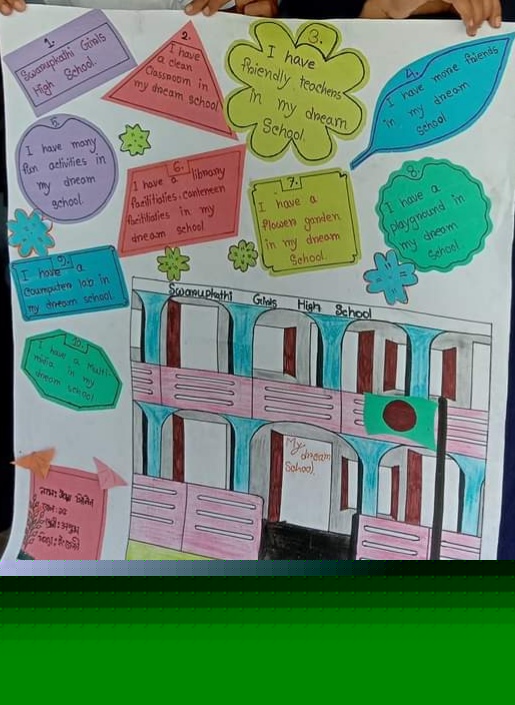 1.
Swarupkathi Girls
High School.
2.
I have
a clean
Classroom in
my dream school
3.
I have
friendly teachers
in my dream
School.
4.
I have more friends
in my dream
School
5.
I have many
fun activities in
my dream
school.
6.
I have a library
facilitiaties, canteneen
facilitiaties in my
dream school
7.
I have a
flower garden
in my dream
School.
8.
I have a
playground in
my dream
School.
9.
I have a
Coumputer lab in
my dream school.
10.
I have a Multi-
media in my
dream school
Swarupkathi Girls High School
My
dream
School.